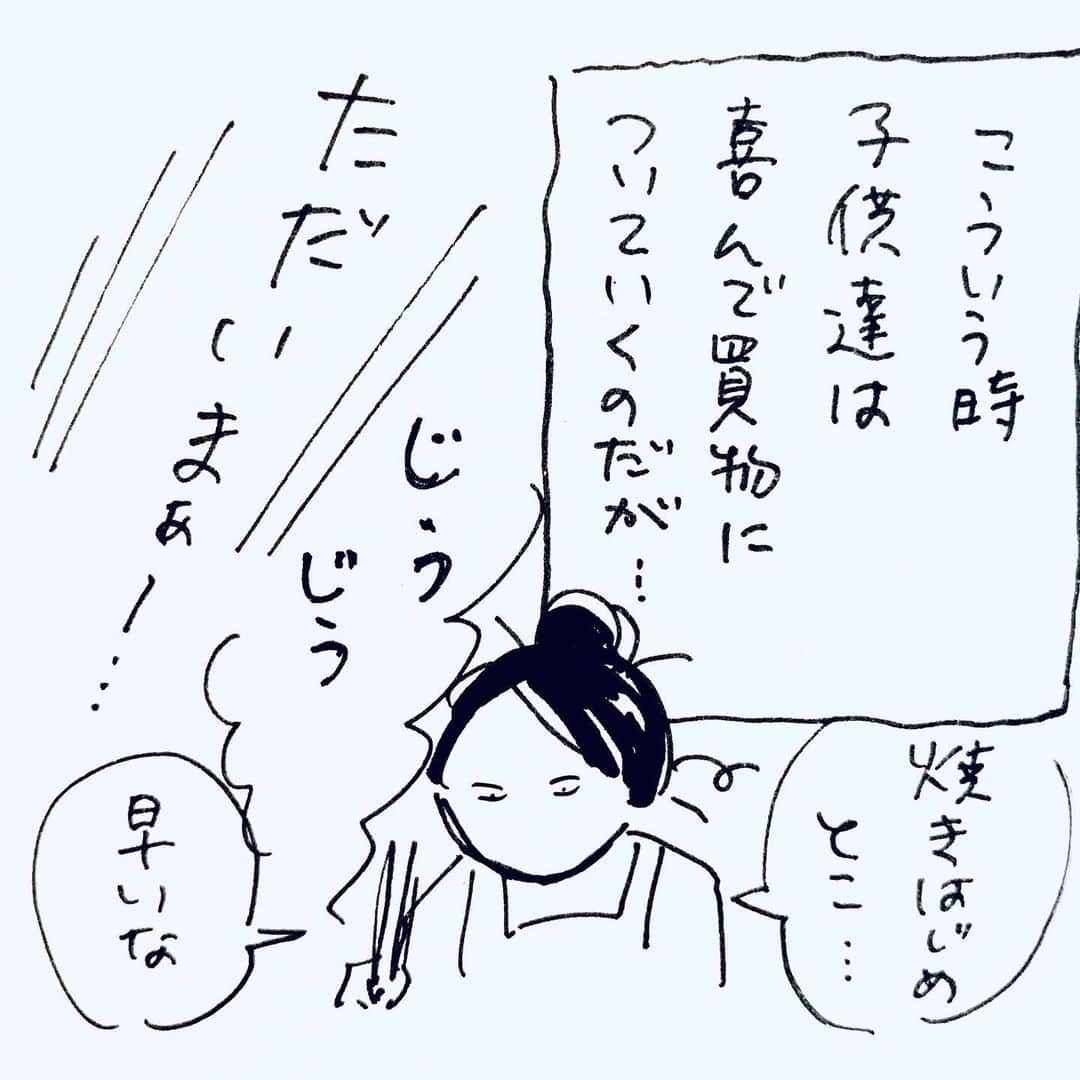 こういう時
子供達は
喜んで買物に
ついていくのだが…
ただいまぁー…
じゅう
じう
焼きはじめ
とこ…
早いな